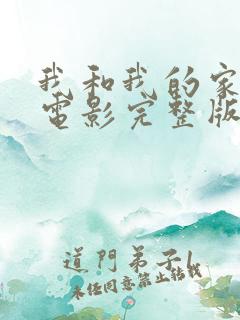 我和我的家
電影完整版
道門弟子
未经同意禁止结缘